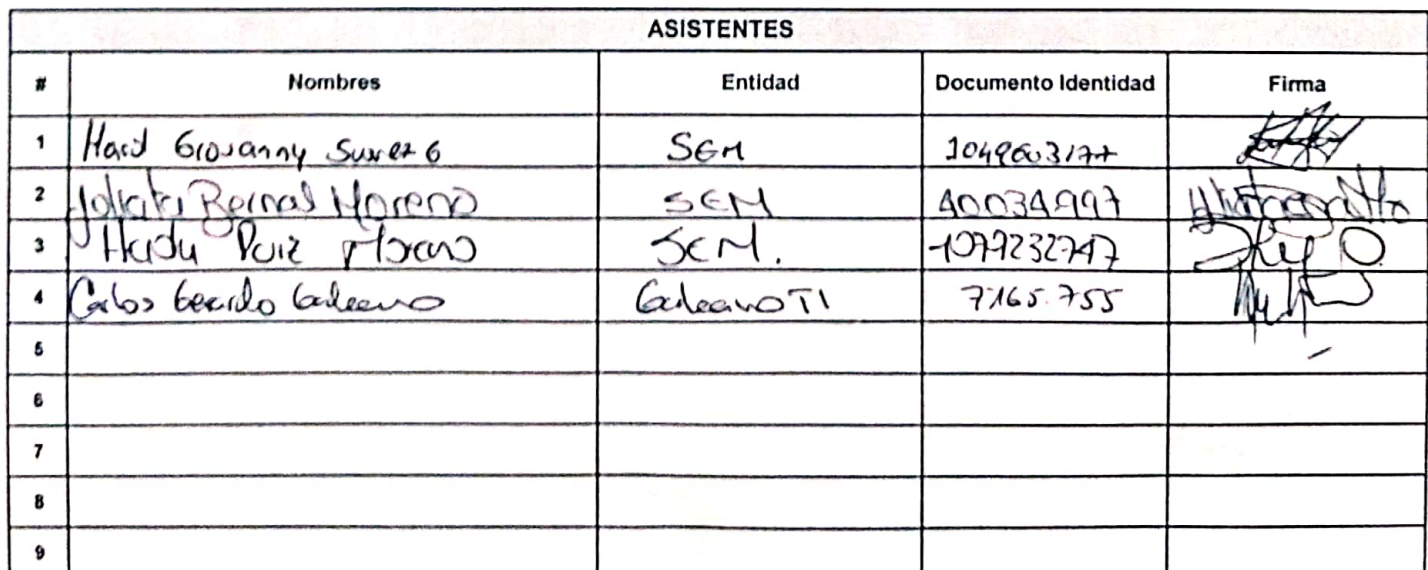 ASISTENTES
# Nombres Entidad Documento Identidad Firma
1 Giovanny SEM
2 Bernal Moreno SEM 40034997
3 Ruiz Moreno SEM. 1079232747
4 Carlos Gerardo Galeano Galeano TI 7165.755
5
6
7
8
9